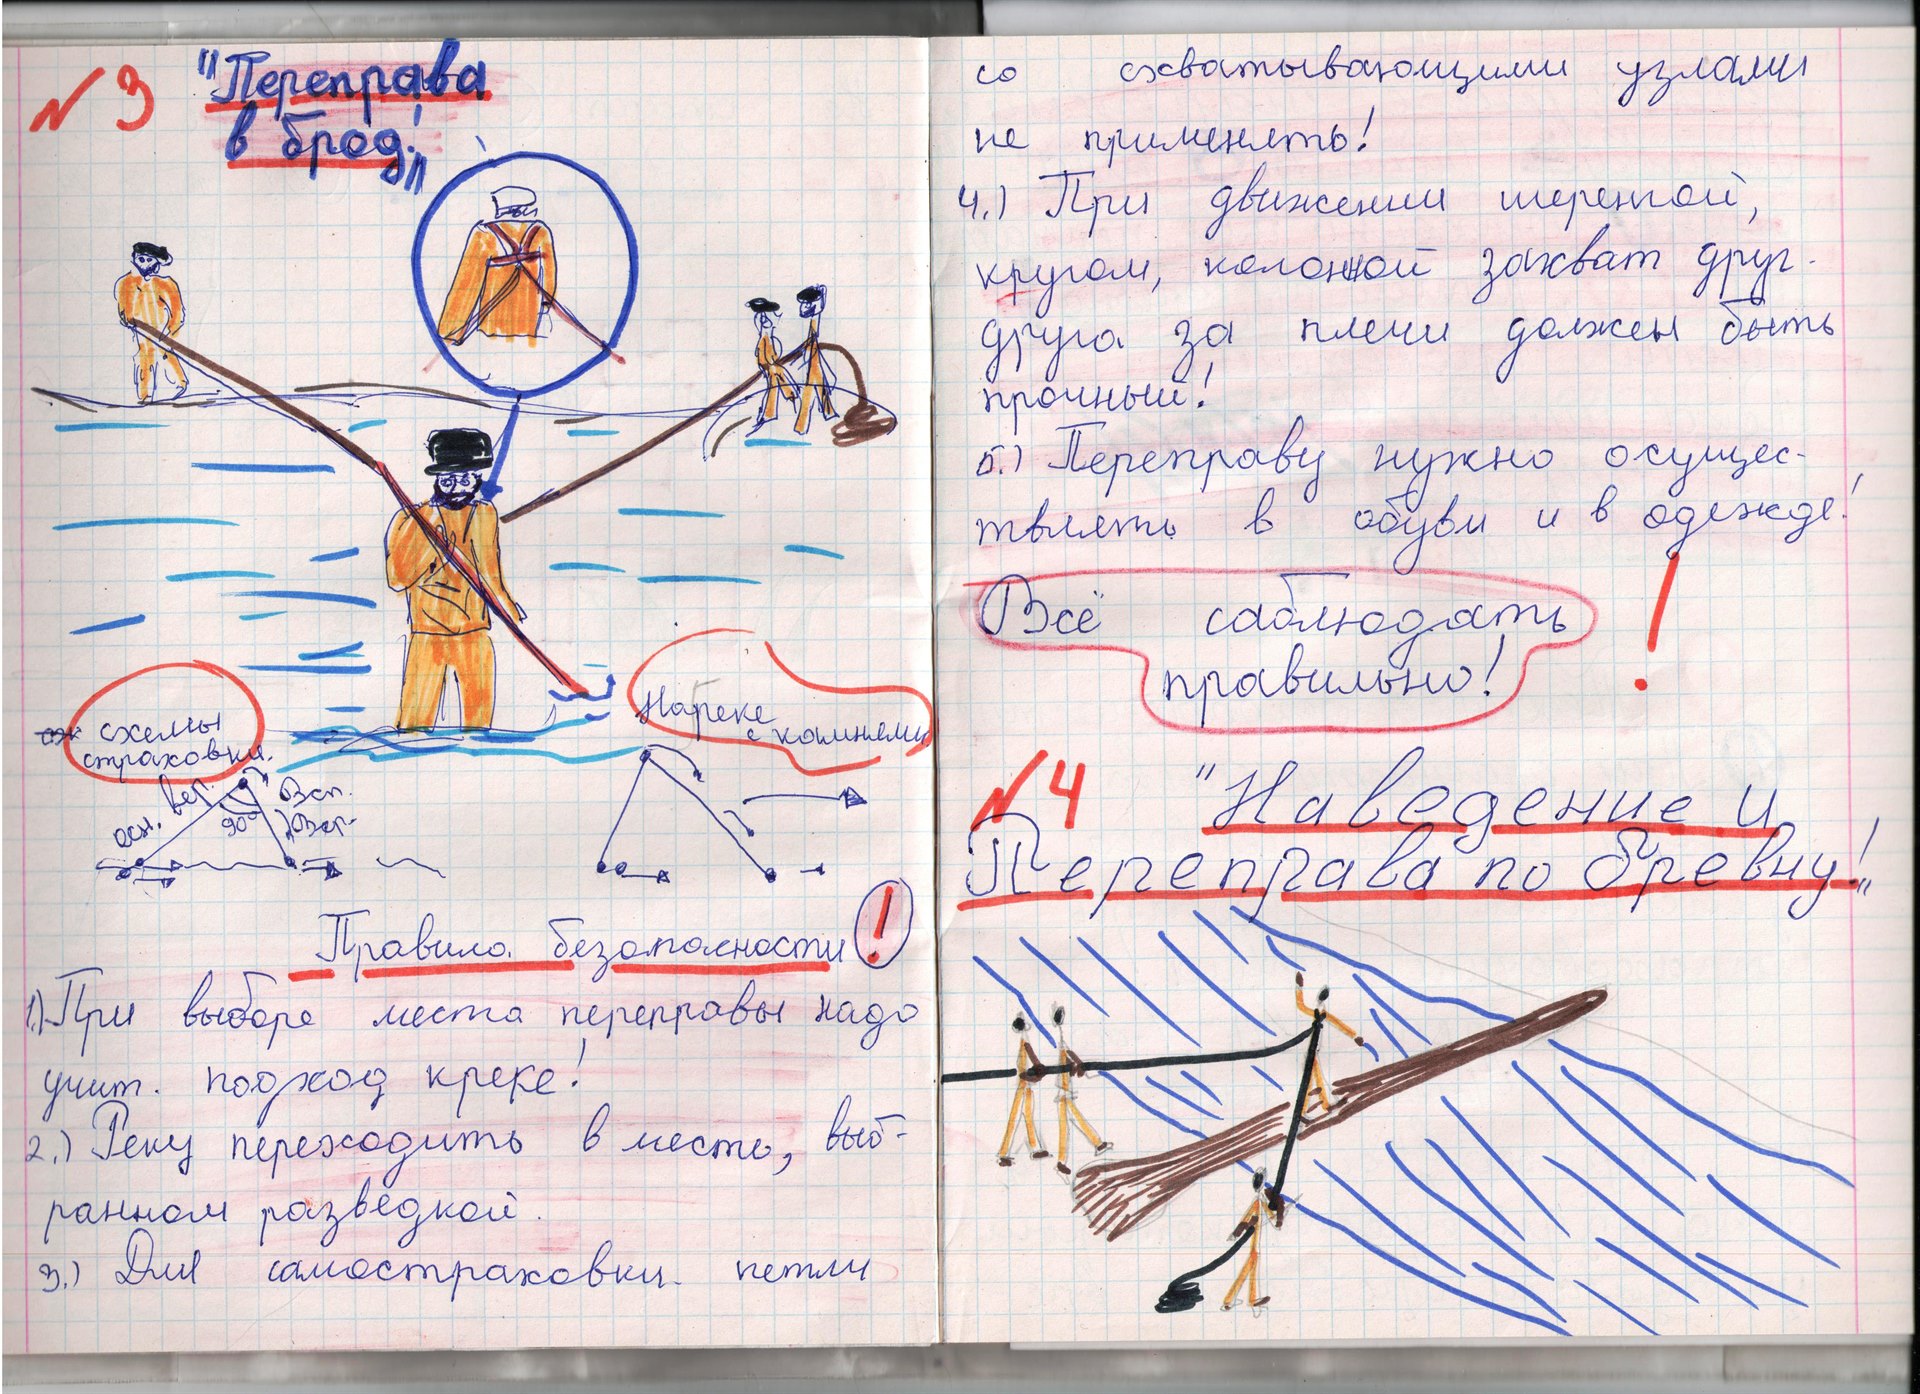 №3 "Переправа
в брод!"
схемы
страховки.
На реке
с камнями
осн. вер.
90°
Всп.
Вер.
Правила безопасности!
1.) При выборе места переправы надо
учит. подход к реке!
2.) Реку переходить в месте, выб-
ранном разведкой.
3.) Для самостраховки петли
со схватывающими узлами
не применять!
4.) При движении шеренгой,
кругом, колонной захват друг-
друга за плечи должен быть
прочный!
5.) Переправу нужно осущес-
твлять в обуви и в одежде!
Всё саблюдать !
правильно!
№4 "Наведение и
Переправа по бревну!"